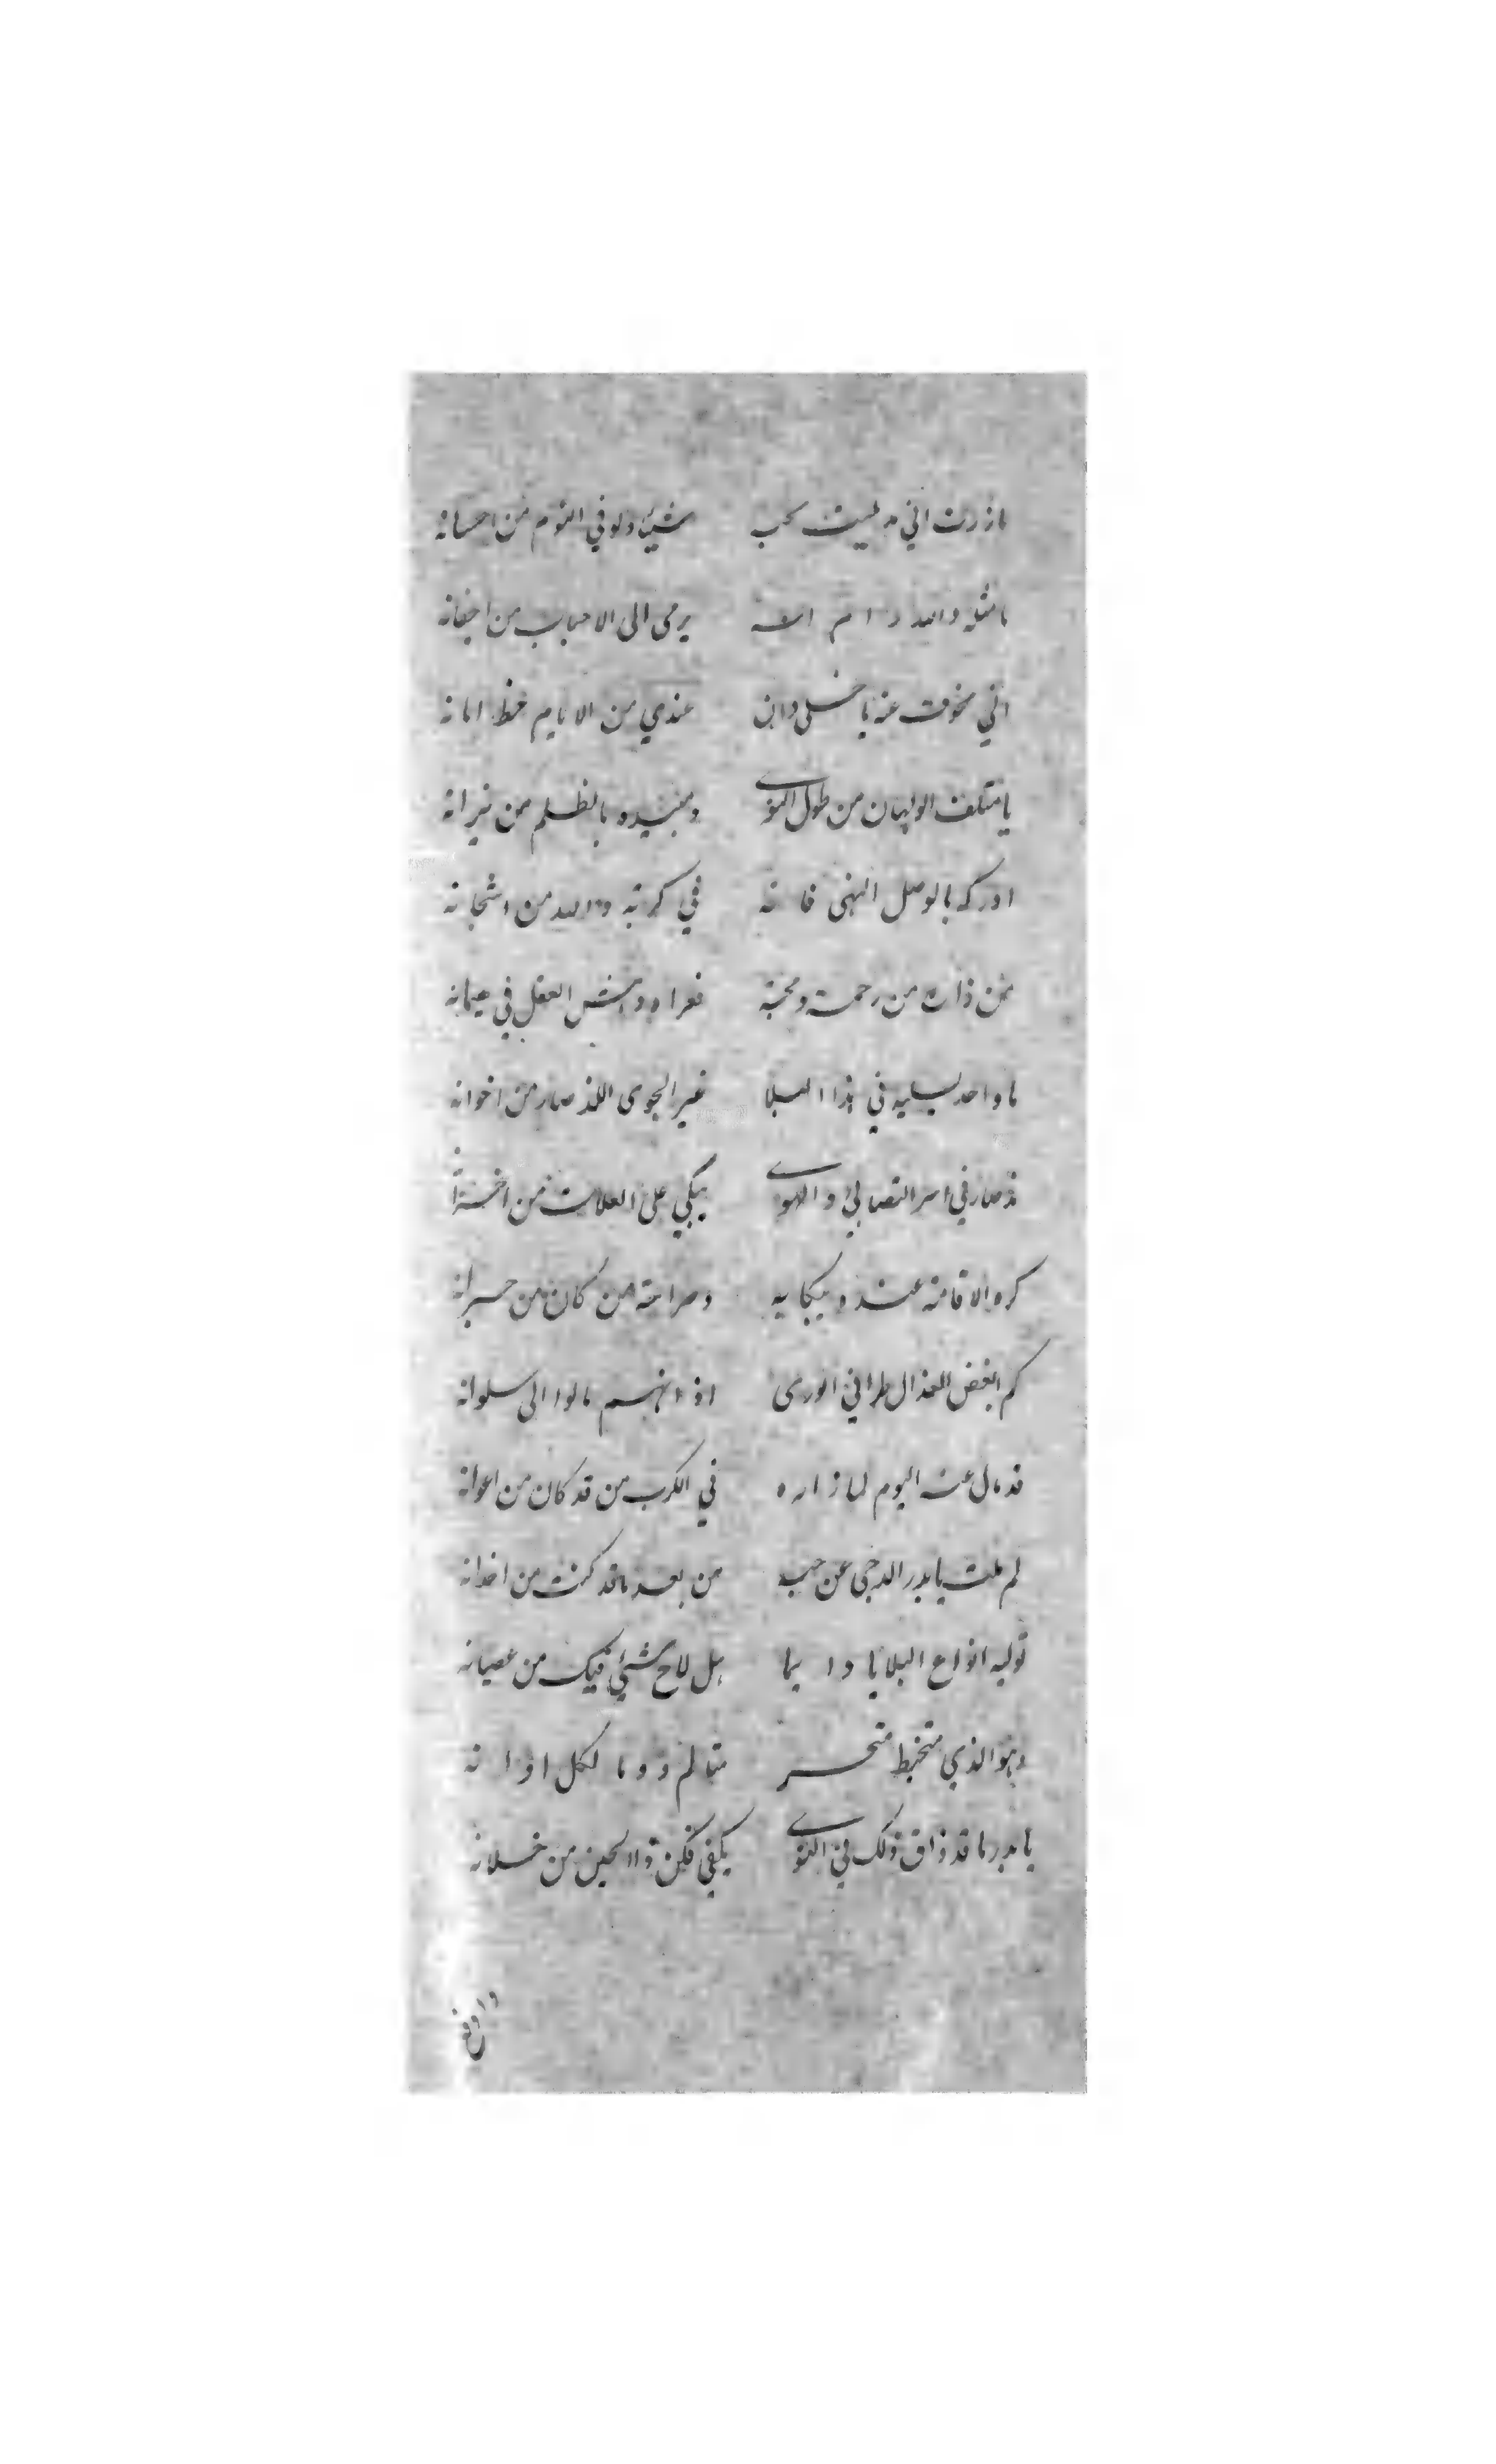 اني شيئا ولو في النوم من احسانه
ما مثله والله يرمى الى الاحباب من اجفانه
اني عنه يا وان عندي من الايام خط امانه
يا متلف الولهان من طول النوى ومبيده بالظلم من نيرانه
ادركه بالوصل الهنى فانه في كربة والله من اشجانه
من رحمة ومحبة فعراه العقل في هيمانه
ما واحد يسليه في هذا البلا غير الجوى اللذ صار من اخوانه
مذ صار في اسر التصابي والهوى يبكي على العلات من
كره الاقامة عنده ببكايه وصراخه من كان من جيرانه
كم ابغض العذال طرا في الورى اذ انهم مالوا الى سلوانه
قد مال عنه اليوم لما زاره في الكرب من قد كان من اعوانه
لم ملت يا بدر الدجى عن حبه من بعد ما قد كنت من اخدانه
توليه انواع البلايا دايما هل لاح شيئ فيك من عصيانه
وهو الذي متخبط متحسر متالم دوما لكل اوانه
يا بدر ما قد ذاق ذلك في النوى يكفي فكن ذا الحين من خلانه